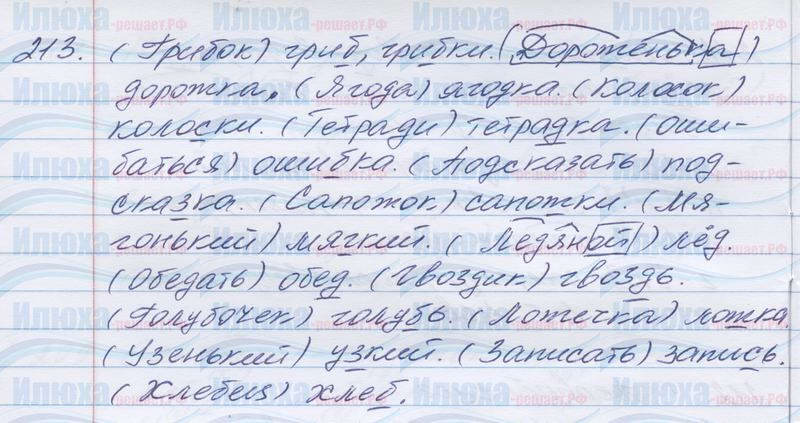 213. (Грибок) гриб, грибки. (Дороженька)
дорожка. (Ягода) ягодка. (Колосок)
колоски. (Тетради) тетрадка. (Оши-
баться) ошибка. (Подсказать) под-
сказка. (Сапожок) сапожки. (Мя-
гонький) мягкий. (Ледяной) лёд.
(Обедать) обед. (Гвоздик) гвоздь.
(Голубочек) голубь. (Ложечка) ложка.
(Узенький) узкий. (Записать) запись.
(Хлебец) хлеб.